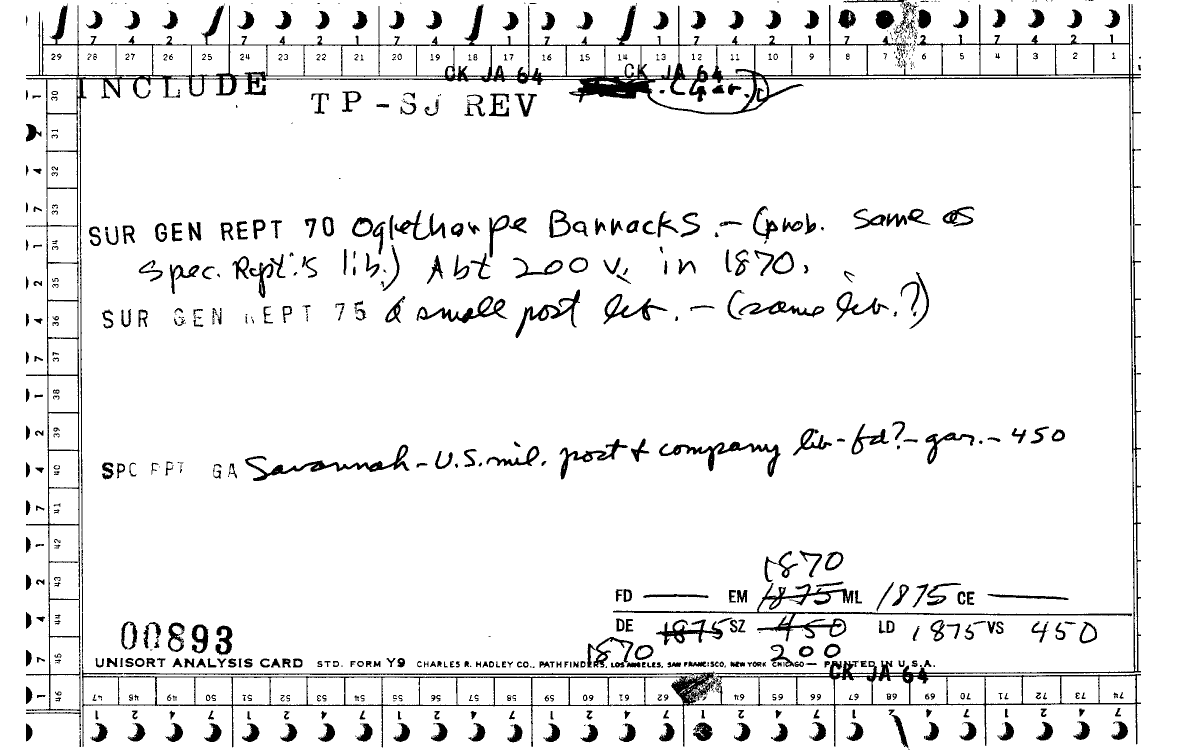 7 4 2 1 7 4 2 1 7 4 2 1 7 4 2 1 7 4 2 1 7 4 2 1 7 4 2 1
29 28 27 26 25 24 23 22 21 20 19 18 17 16 15 14 13 12 11 10 9 8 7 6 5 4 3 2 1
CK JA 64 CK JA 64
INCLUDE
TP-SJ REV (gar.)
SUR GEN REPT 70 Oglethorpe Barracks. - (prob. same as
Spec. Rept.'s lib.) Abt 200 v. in 1870.
SUR GEN REPT 75 a small post lib. - (same lib.?)
SPC RPT GA Savannah - U.S. mil. post & company lib - fd? - gar. - 450
1870
FD —— EM 1875 ML 1875 CE ——
DE 1875 SZ 450 LD 1875 VS 450
00893
1870 200
UNISORT ANALYSIS CARD STD. FORM Y9 CHARLES R. HADLEY CO., PATHFINDERS, LOS ANGELES, SAN FRANCISCO, NEW YORK CHICAGO — PRINTED IN U.S.A.
CK JA 64
30 31 32 33 34 35 36 37 38 39 40 41 42 43 44 45 46
47 48 49 50 51 52 53 54 55 56 57 58 59 60 61 62 64 65 66 67 68 69 70 71 72 73 74